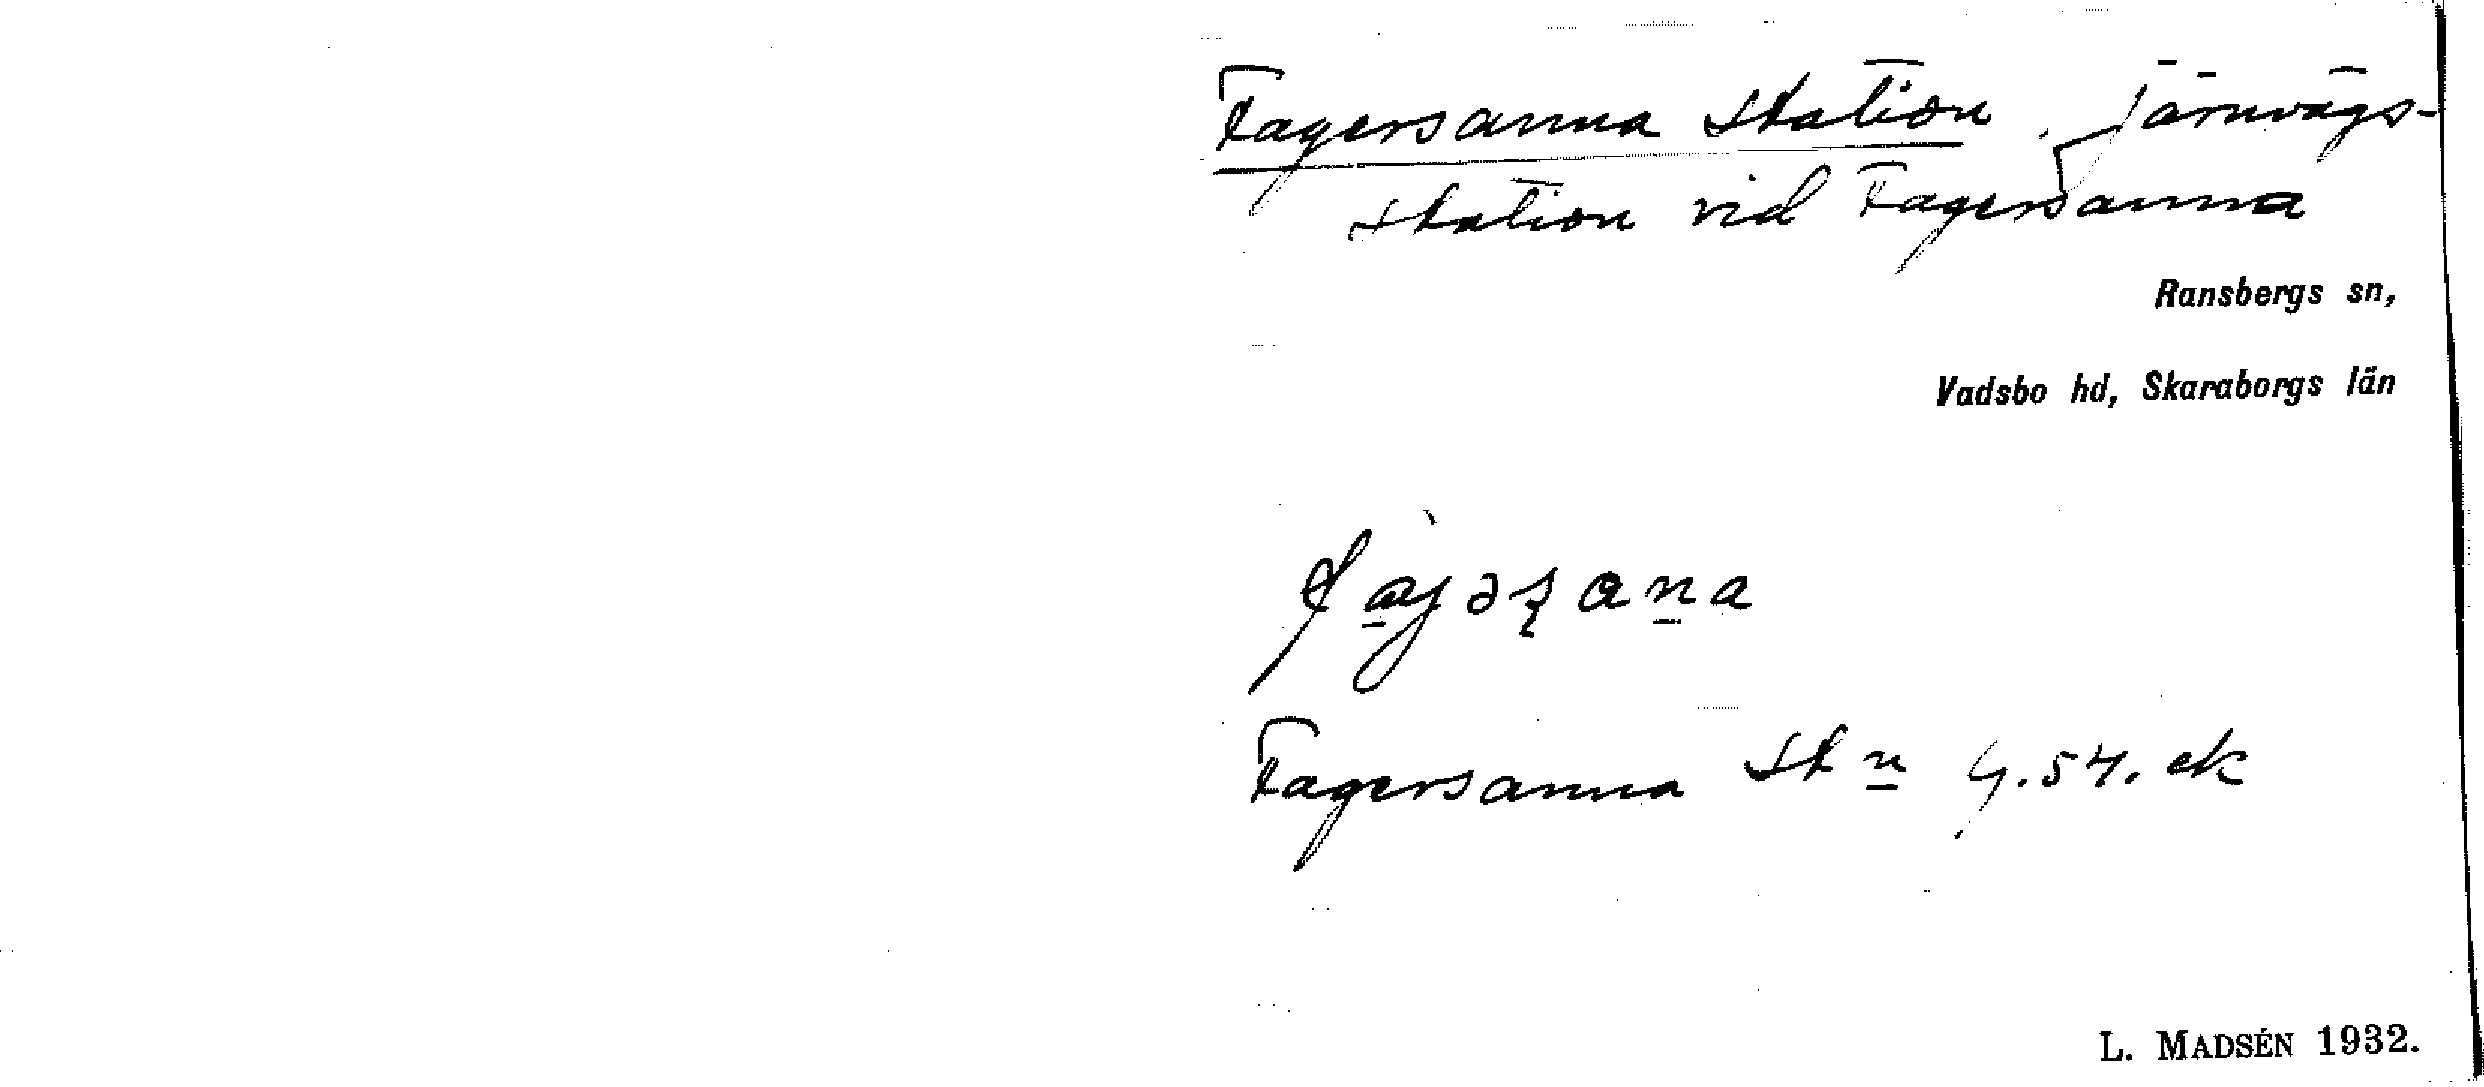 Fagersanna Station, järnvägs-
station vid Fagersanna
Ransbergs sn,
Vadsbo hd, Skaraborgs län
Fagersanna stn G.54. ek
L. MADSÉN 1932.